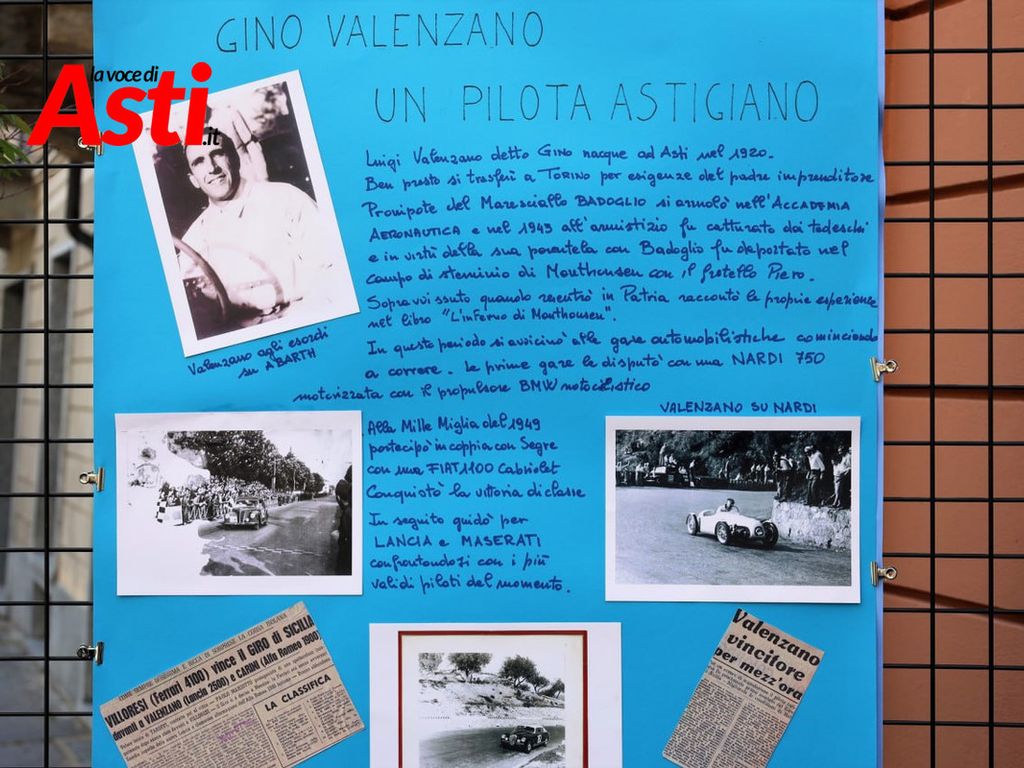 GINO VALENZANO
la voce di
Asti
.it
UN PILOTA ASTIGIANO
Luigi Valenzano detto GINO nacque ad Asti nel 1920.
Ben presto si trasferì a TORINO per esigenze del padre imprenditore
Pronipote del Maresciallo BADOGLIO si arruolò nell'ACCADEMIA
AERONAUTICA e nel 1943 all'armistizio fu catturato dai tedeschi
e in virtù della sua parentela con Badoglio fu deportato nel
campo di sterminio di Mauthausen con il fratello Piero.
Sopravvissuto quando rientrò in Patria raccontò le proprie esperienze
nel libro "L'inferno di Mauthausen".
In questo periodo si avvicinò alle gare automobilistiche cominciando
a correre. Le prime gare le disputò con una NARDI 750
motorizzata con il propulsore BMW motociclistico
Valenzano agli esordi
su ABARTH
VALENZANO SU NARDI
Alla Mille Miglia del 1949
partecipò in coppia con Segre
con una FIAT 1100 Cabriolet
Conquistò la vittoria di classe
In seguito guidò per
LANCIA e MASERATI
confrontandosi con i più
validi piloti del momento.
VILLORESI (Ferrari 4100) vince il GIRO di SICILIA
davanti a VALENZANO (Lancia 2500) e CARINI (Alfa Romeo 1900)
LA CLASSIFICA
Valenzano
vincitore
per mezz'ora